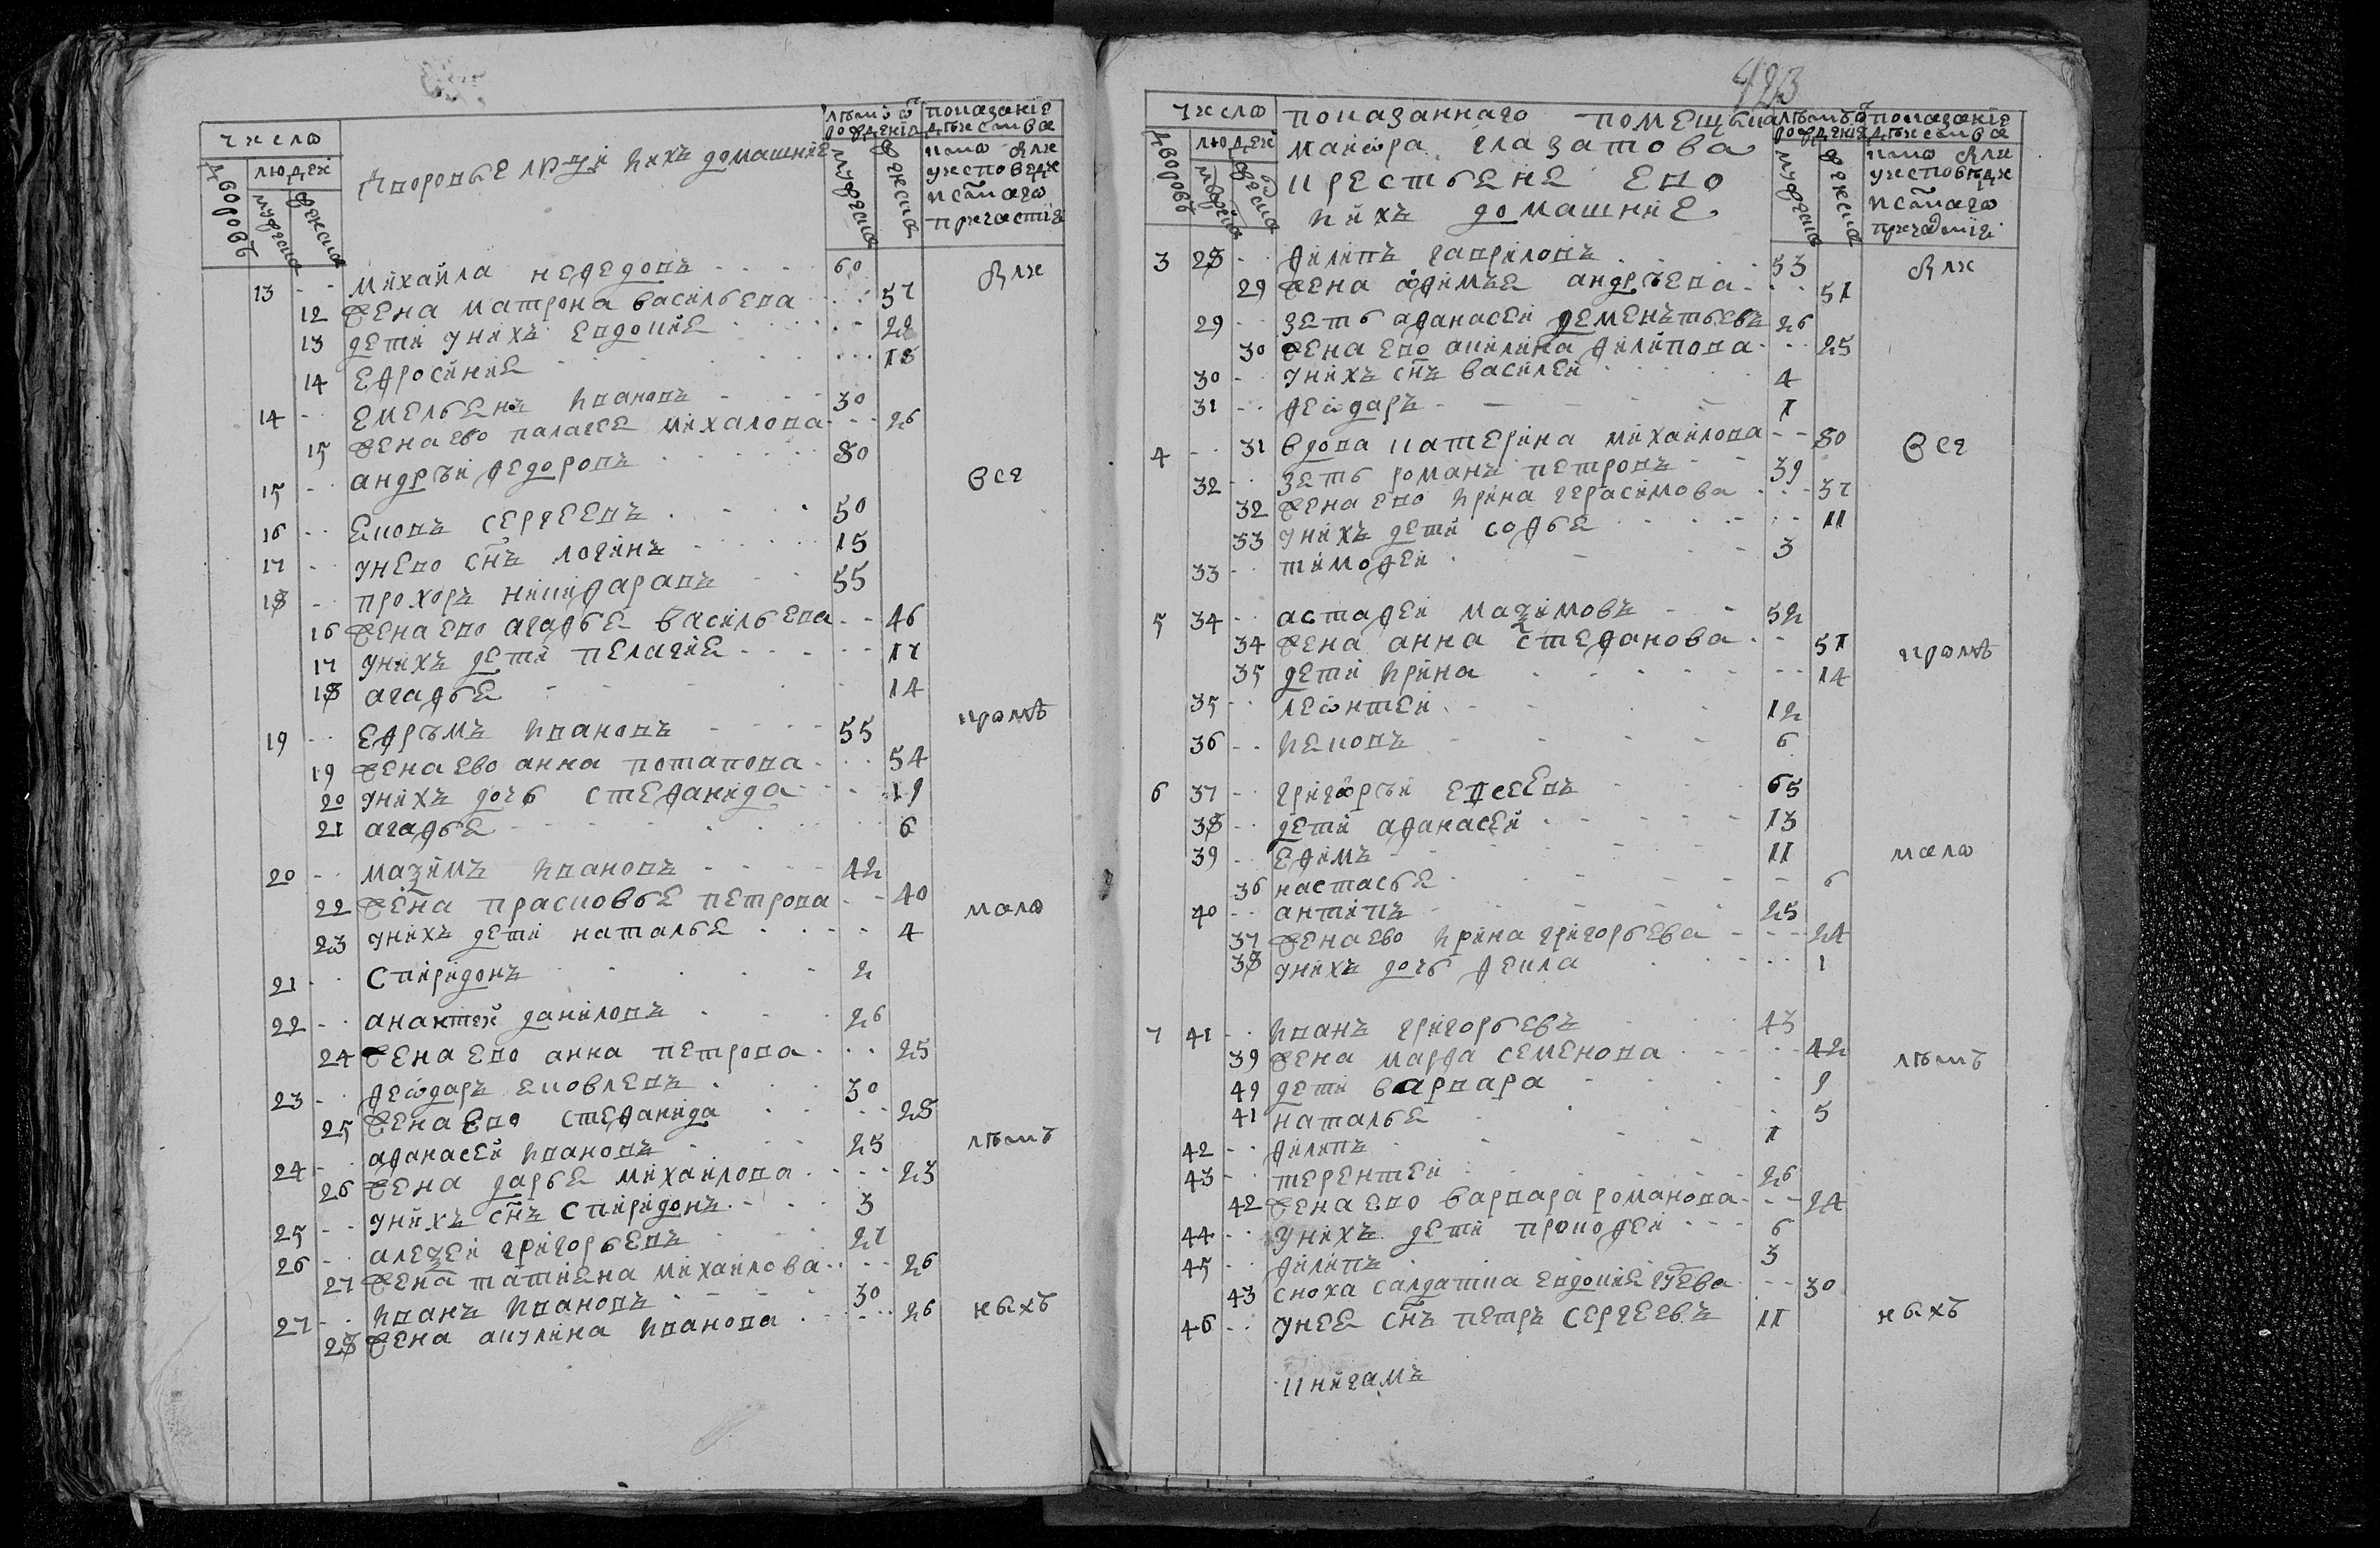 число
людей
дворовъ
мужеска
женска
дворовые люди ихъ домашние
лѣтъ ѿ рождениѧ
мужеска
женска
показание дѣиства
кто был
у исповеди
и стаго
причастиѧ
13 - - михаила нефедовъ 60
12 жена матрона васильева 57
13 дети у нихъ евдокие 22
14 ефросиние 18
14 - емельенъ ивановъ 30
15 жена ево палагее михалова 26
15 - андрѣи федоровъ 80
16 - ековъ сергеевъ 50
17 - у нево снъ логинъ 15
18 - прохоръ никифаравъ 55
16 жена ево агафье васильева 46
17 у нихъ дети пелагие 17
18 агафье 14
19 - ефрѣмъ ивановъ 55
19 жена ево анна потапова 54
20 у нихъ дочь стефанида 19
21 агафье 6
20 - маѯимъ ивановъ 42
22 жена прасковье петрова 40
23 у нихъ дети наталье 4
21 - спиридонъ 2
22 - анактеи даниловъ 26
24 жена ево анна петрова 25
23 - феѡдаръ ековлевъ 30
25 жена ево стефанида 28
24 - афанасеи ивановъ 25
26 жена дарье михаилова 23
25 - у нихъ снъ спиридонъ 3
26 - алеѯеи григорьевъ 27
27 жена татиена михаилова 26
27 - иванъ ивановъ 30
28 жена акулина ивановa 26
были
все
кромѣ
мало
лѣтъ
ныхъ
423
число
людей
дворовъ
мужеска
женска
показаннаго помещика
маиѡра глазатова
крестьене ево
и ихъ домашние
лѣтъ ѿ рождениѧ
мужеска
женска
показание дѣиства
кто был
у исповѣди
и стаго
причастиѧ
3 28 - филипъ гавриловъ 53
29 жена афимъе андрѣева 51
29 - зеть афанасеи деменътьевъ 26
30 жена ево акилина филипова 25
30 - у нихъ снъ василеи 4
31 - феѡдаръ 1
4 - 31 вдова катерина михаилова 80
32 - зеть романъ петровъ 39
32 жена ево ирина герасимова 37
33 у нихъ дети софье 11
33 - тимофеи 3
5 34 - астафеи маѯимовъ 52
34 жена анна стефанова 51
35 дети ирина 14
35 - леѡнтеи 12
36 - иековъ 6
6 37 - григѡрѣи евсеевъ 65
38 - дети афанасеи 13
39 - ефимъ 11
36 настасье 6
40 - антипъ 25
37 жена ево ирина григорьева 24
38 у нихъ дочь фекла 1
7 41 - иванъ григорьевъ 43
39 жена марфа семенова 42
49 дети варвара 9
41 наталье 5
42 - филипъ 1
43 - терентеи 26
42 жена ево варвара романова 24
44 - у нихъ дети прокофеи 6
45 - филипъ 3
43 сноха салдатка евдокие 30
46 - у нее снъ петръ сергеевъ 11
были
все
кромѣ
мало
лѣтъ
ныхъ
книгамъ